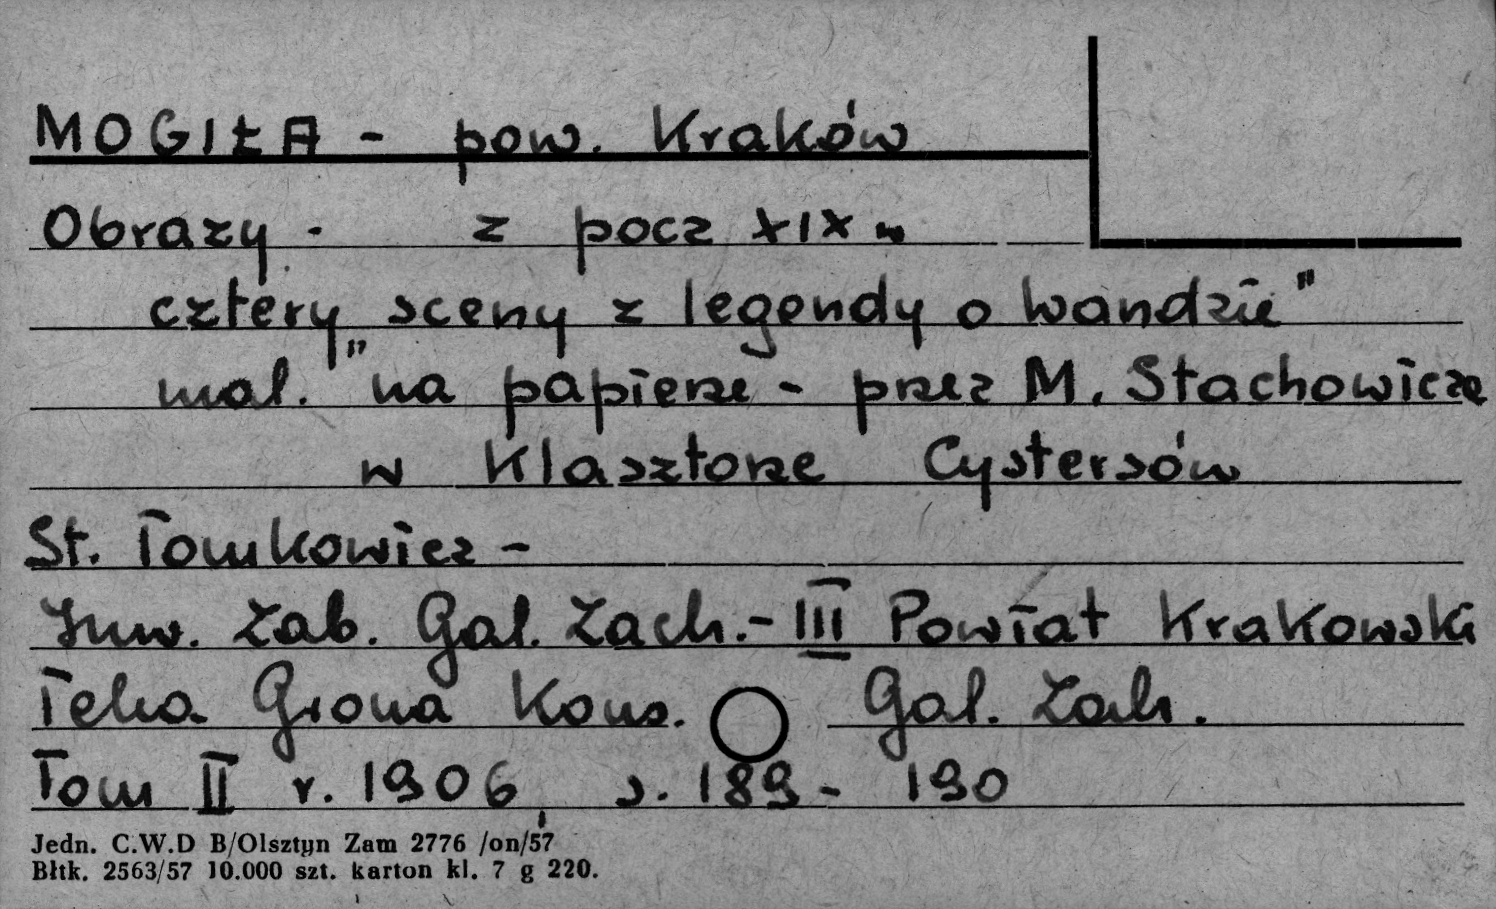 MOGIŁA - pow. Kraków
Obrazy - z pocz XIX w
cztery sceny z legendy o Wandzie"
mal. "na papierze - przez M. Stachowicza
w Klasztorze Cystersów
St. Tomkowicz -
Inw. Zab. Gal. Zach. - III Powiat Krakowski
Teka Grona Kons. Gal. Zach.
Tom II r. 1906, s. 189 - 190
Jedn. C.W.D B/Olsztyn Zam 2776 /on/57
Błtk. 2563/57 10.000 szt. karton kl. 7 g 220.